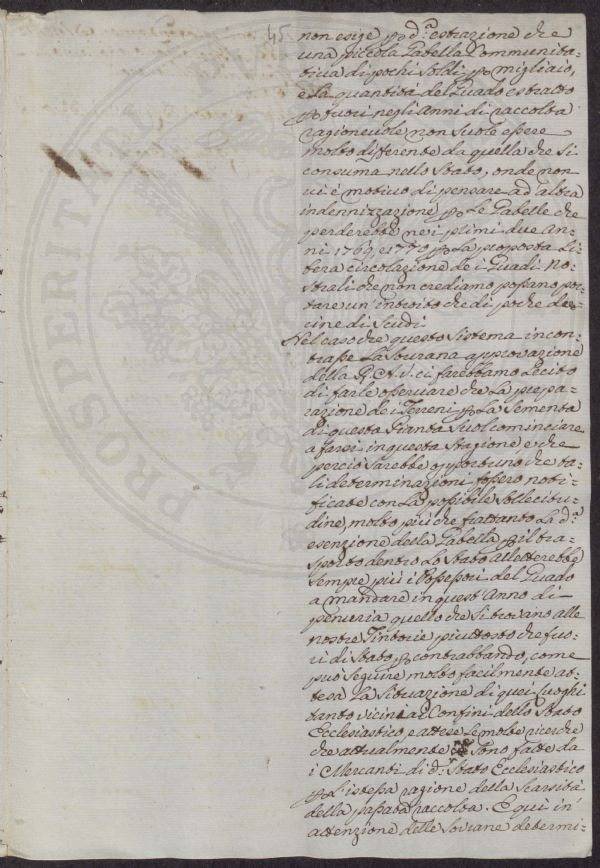 45
non esige p d.ª estrazione che
una piccola Gabella Communita=
tiva di pochi soldi p migliaio,
e la quantità del Guado estratto
p fuori negli Anni di raccolta
ragionevole non suole essere
molto differente da quella che si
consuma nello Stato, onde non
vi è motivo di pensare ad altra
indennizzazione p Le Gabelle che
perderebbe nei primi due An=
ni 1769, e 1770 p La proposta Li=
bera circolazione dei Guadi No=
strali che non crediamo possano por=
tare un' introito che di poche de=
cine di Scudi.
Nel caso che questo Sistema incon=
trasse La Sovrana approvazione
della R. A. V. ci farebbamo Lecito
di farle osservare che La prepa=
razione dei Terreni p La Sementa
di questa Pianta suol cominciare
a farsi in questa Stagione, e che
perciò sarebbe opportuno che ta=
li determinazioni fossero noti=
ficate con La possibile sollecitu=
dine, molto più che frattanto La d.ª
esenzione della Gabella p il tra=
sporto dentro Lo Stato alletterebbe
sempre più i Possessori del Guado
a mandare in quest' Anno di
penuria quello che si trovano alle
nostre Tintorie piuttosto che fuo=
ri di Stato p contrabbando, come
può seguire molto facilmente at=
tesa La Situazione di quei Luoghi
tanto vicini ai Confini dello Stato
Ecclesiastico, e attese Le molte ricerche
che attualmente sono fatte da
i Mercanti di d.º Stato Ecclesiastico
p L' istessa ragione della scarsità
della passata raccolta. E qui in
attenzione delle Sovrane determi=
PROSPERITATI